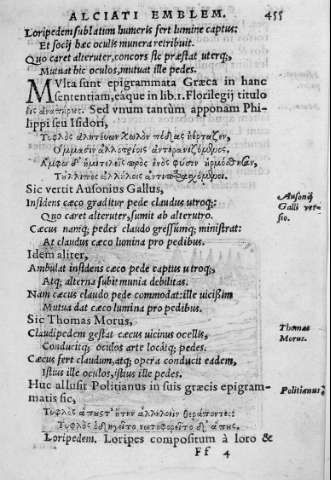 ALCIATI EMBLEM. 455
Loripedem sublatum humeris fert lumine captus:
Et socij hæc oculis munera retribuit.
Quo caret alteruter, concors sic præstat uterq;,
Mutuat hic oculos, mutuat ille pedes.
MVlta sunt epigrammata Græca in hanc
sententiam, eaque in lib. 1. Florilegij titulo
εἰς ἀναπήρους. Sed vnum tantùm apponam Phi-
lippi seu Isidori,
Τυφλὸς ἀλητεύων χωλὸν πόδας ἠέρταζεν,
Ὄμμασιν ἀλλοτρίοις ἀντερανιζόμενος.
Ἄμφω δ' ἡμιτελεῖς πρὸς ἑνὸς φύσιν ἡρμόσθησαν,
Τοὐλλιπὲς ἀλλήλοις ἀντιπαρασχόμενοι.
Sic vertit Ausonius Gallus,
Ausonij
Galli ver-
sio.
Insidens cæco graditur pede claudus utroq;:
Quo caret alteruter, sumit ab alterutro.
Cæcus namq; pedes claudo gressumq; ministrat:
At claudus cæco lumina pro pedibus.
Idem aliter,
Ambulat insidens cæco pede captus utroq;,
Atq; alterna subit munia debilitas.
Nam cæcus claudo pede commodat: ille uicißim
Mutua dat cæco lumina pro pedibus.
Sic Thomas Morus,
Thomas
Morus.
Claudipedem gestat cæcus uicinus ocellis,
Conducitq; oculos arte locatq; pedes.
Cæcus fert claudum, atq; opera conducit eadem,
Istius ille oculos, istius ille pedes.
Huc allusit Politianus in suis græcis epigram-
Politianus
matis sic,
Loripedem. Loripes compositum à loro &
Ff 4